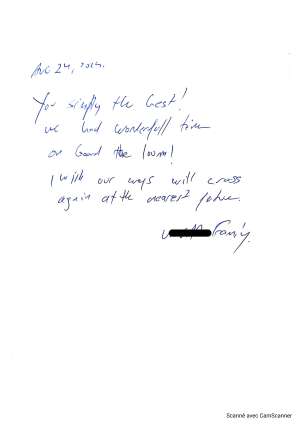 Aug 24,
You simply the best!
we had wonderfull time
on board the
I wish our ways will cross
again at the nearest future.
Family.
Scanné avec CamScanner